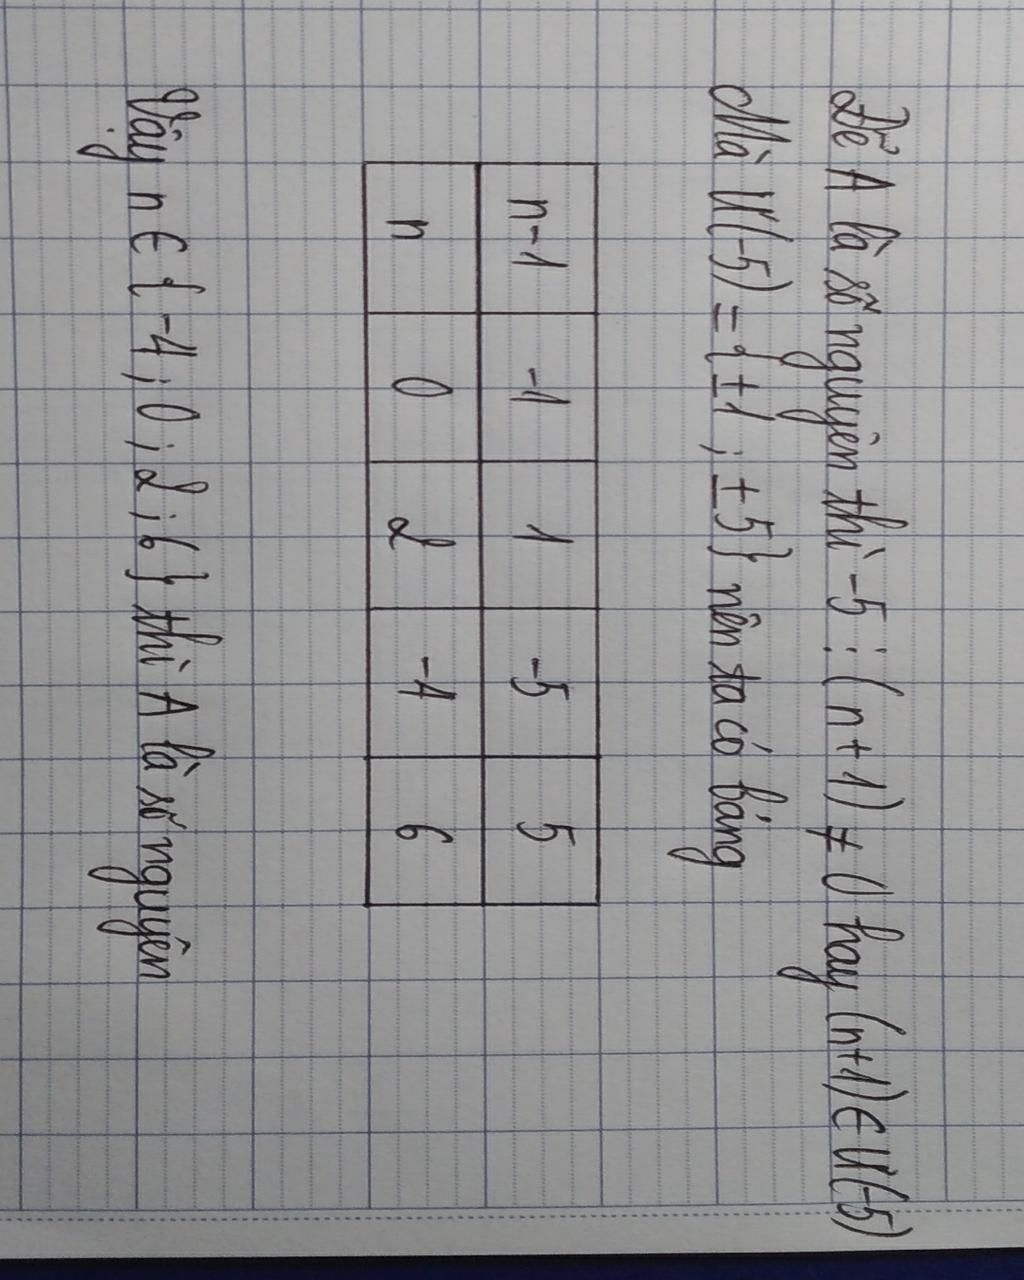 Để A là số nguyên thì -5 ⋮ (n+1) ≠ 0 hay (n+1) ∈ Ư(-5)
Mà Ư(-5) = {±1 ; ±5} nên ta có bảng
n-1 -1 1 -5 5
n 0 2 -4 6
Vậy n ∈ {-4 ; 0 ; 2 ; 6} thì A là số nguyên